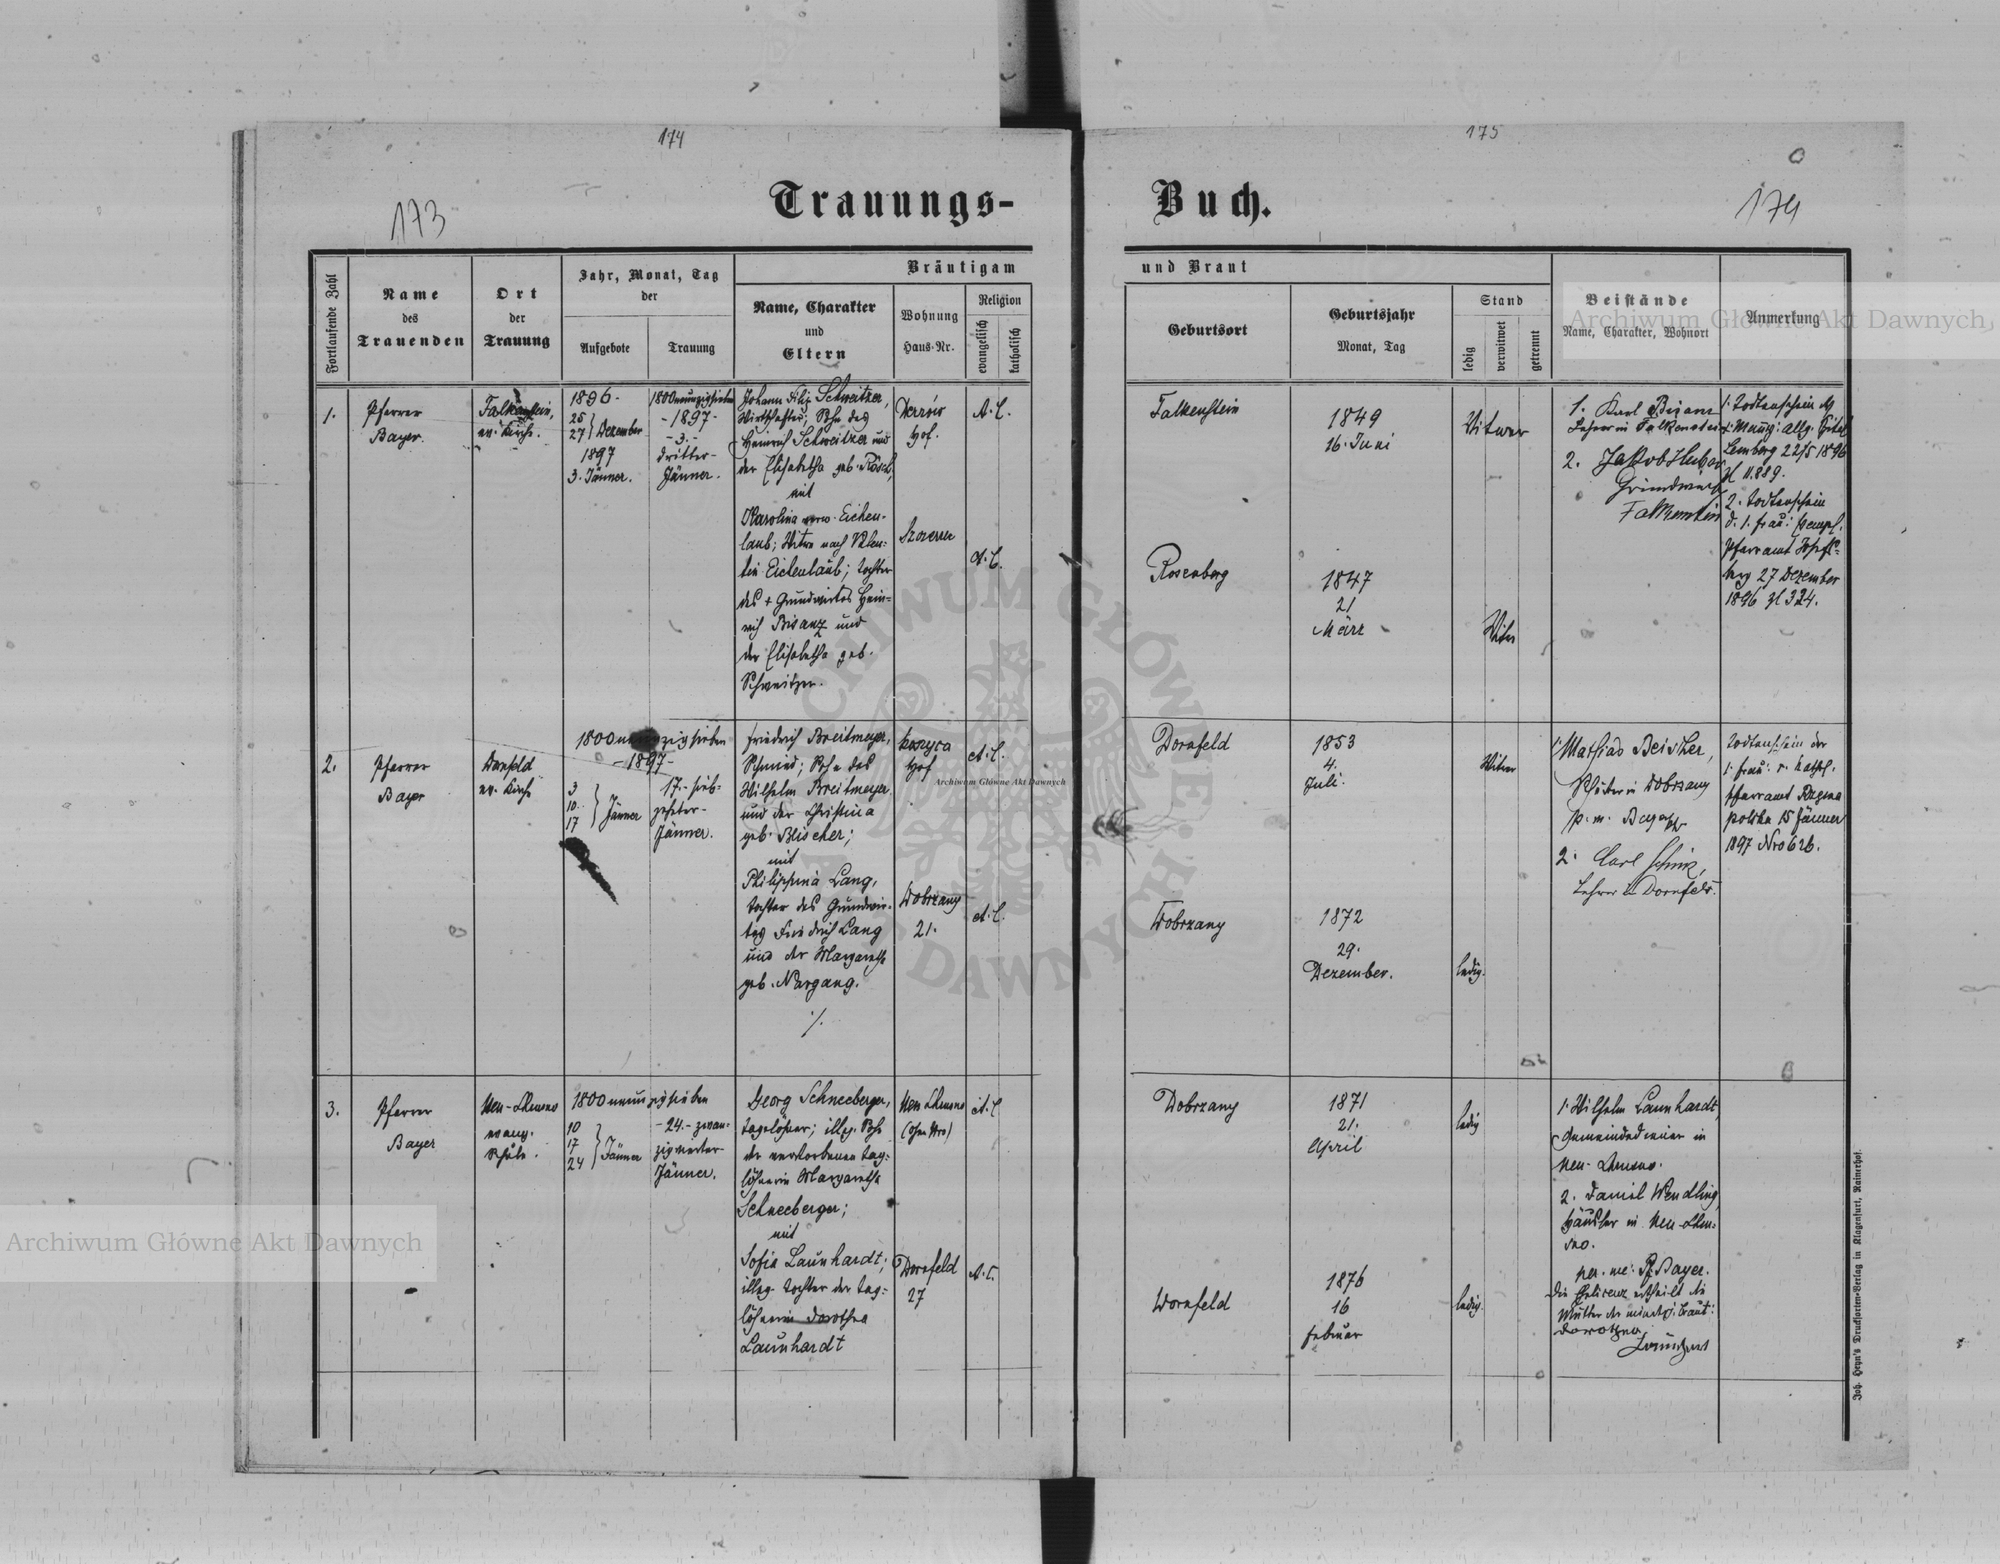 174
175
173
174
Trauungs-
Buch.
Fortlaufende Zahl
Name
des
Trauenden
Ort
der
Trauung
Jahr, Monat, Tag
der
Aufgebote
Trauung
Bräutigam
Name, Charakter
und
Eltern
Wohnung
Haus-Nr.
Religion
evangelisch
katholisch
und Braut
Geburtsort
Geburtsjahr
Monat, Tag
Stand
ledig
verwitwet
getrennt
Beistände
Name, Charakter, Wohnort
Anmerkung
1.
Pfarrer
Bayer.
Falkenstein,
ev. Kirche.
1896-
25
27 } Dezember
1897
3. Jänner.
1800neunzigsieben
-1897-
-3.-
dritter-
Jänner.
Johann Filip Schweitzer,
Wirthschafter; Sohn des
Heinrich Schweitzer und
der Elisabetha geb. Rösch,
mit
Karolina verw. Eichen-
laub; Witwe nach Valen-
tin Eichenlaub; Tochter
des + Grundwirtes Hein-
rich Bisanz und
der Elisabetha geb.
Schweitzer.
Hof.
Szczerzec
A.C.
A.C.
Falkenstein
1849
16. Juni
Witwer
Rosenberg
1847
21
März
Witwe
1. Karl Bisanz
Lehrer in Falkenstein
2. Jakob Huber
Grundwirth
Falkenstein
1. Todtenschein des
Lemberg 22/5 1896
Zl 11.889.
2. Todtenschein
d. 1. Frau:
Pfarramt Josefs-
berg 27 Dezember
1896 Zl 324.
2.
Pfarrer
Bayer
Dornfeld
ev. Kirche
1800neunzigsieben
-1897-
3
10
17 } Jänner
17.- sieb-
zehnter-
Jänner.
Friedrich Breitmeyer,
Schmied; Sohn des
Wilhelm Breitmeyer
und der Christina
geb. Blischer;
mit
Philippina Lang,
Tochter des Grundwir-
tes Friedrich Lang
und der Margaretha
geb. Nargang.
./.
Hof
Dobrzany
21.
A.C.
A.C.
Dornfeld
1853
4.
Juli.
Witwer
Dobrzany
1872
29.
Dezember.
ledig.
1. Mathias Beisher,
in Dobrzany
p. m. Bayer
2. Carl Schick,
Lehrer in Dornfeld.
Todtenschein der
1. Frau: r. kathol.
Pfarramt Rozena
polska 15 Jänner
1897 Nro 626.
3.
Pfarrer
Bayer
Neu-Chrusno
evang.
Schule.
1800neunzigsieben
10
17
24 } Jänner
-24.- zwan-
zigvierter-
Jänner.
Georg Schneeberger,
Taglöhner; illeg. Sohn
der verstorbenen Tag-
löhnerin Margaretha
Schneeberger;
mit
Sofia Launhardt;
illeg. Tochter der Tag-
löhnerin Dorothea
Launhardt
Neu Chrusno
(ohne Nro)
Dornfeld
27
A.C.
A.C.
Dobrzany
1871
21.
April
ledig
Dornfeld
1876
16
Februar
ledig.
1. Wilhelm Launhardt,
Gemeindediener in
Neu-Chrusno.
2. Daniel Wendling,
Häusler in Neu-Chru-
sno.
per. me: Pf. Bayer.
Die Ehelicenz ertheilt die
Mutter der minderj. Braut:
Dorothea
Launhart
Joh. Heyn's Drucksorten-Verlag in Klagenfurt, Rainerhof.
Archiwum Główne Akt Dawnych
Archiwum Główne Akt Dawnych
Archiwum Główne Akt Dawnych
ARCHIWUM GŁÓWNE AKT DAWNYCH